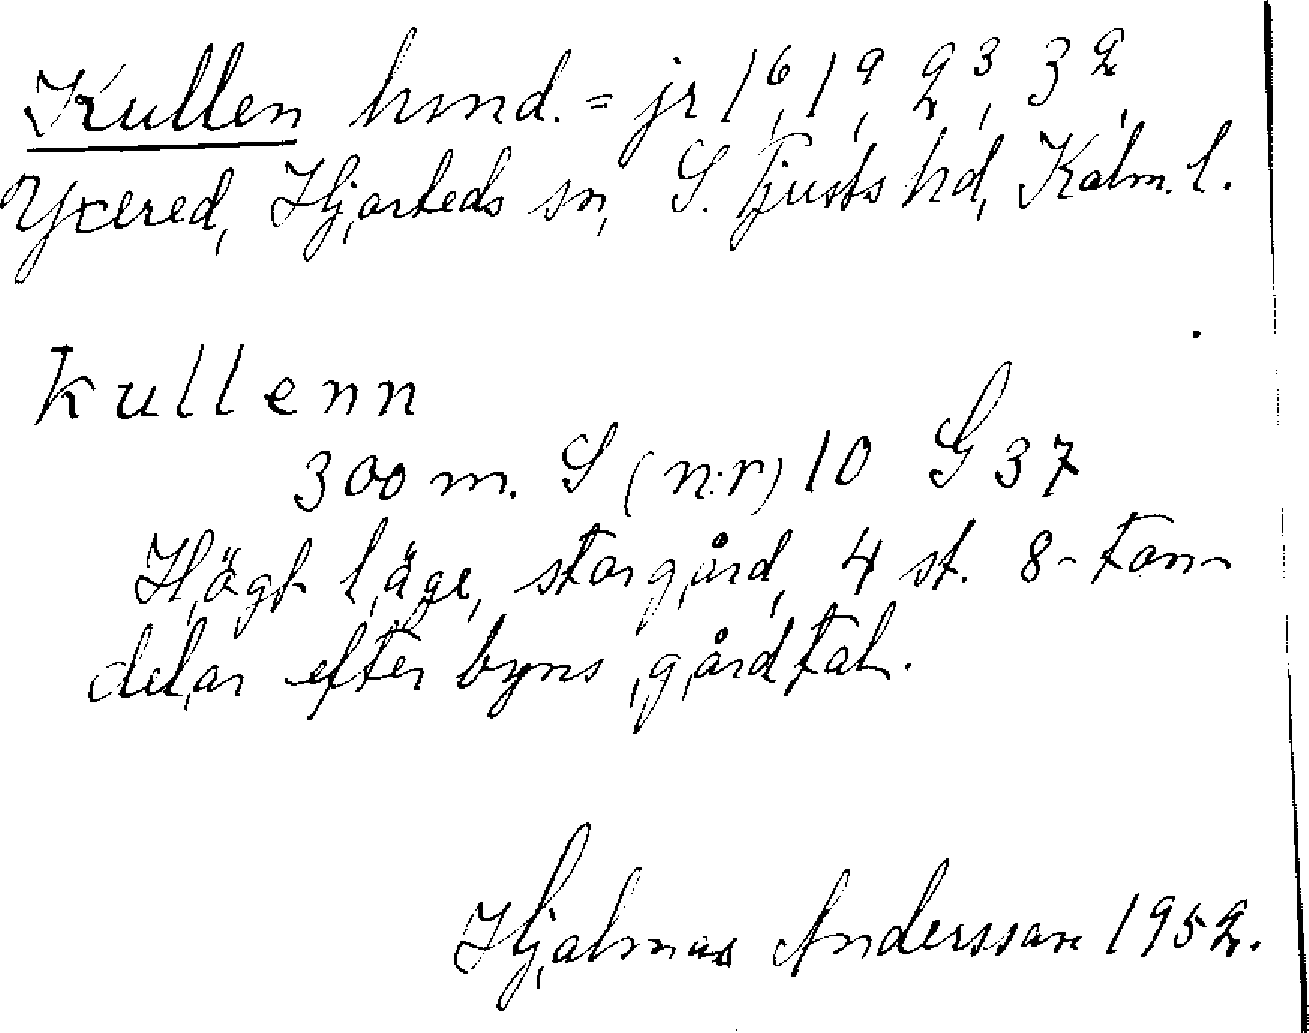 Kullen hmd. = jr 1⁶, 1⁹, 2³, 3²,
Yxered, Hjorteds sn, S. Tjusts hd, Kalm. l.
kullenn
300 m. S (n:r) 10 G 37
Högt läge, storgård, 4 st. 8-ton-
delar efter byns gårdtal.
Hjalmar Andersson 1952.